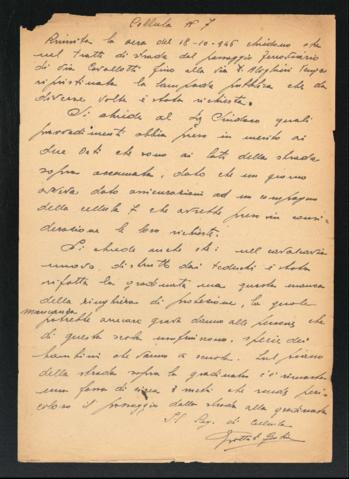 Cellula N 7
Riunita la sera del 18-10-946 chiedono che
nel tratto di strada del passaggio ferroviario
di Via Cavallotti fino alla via
ripristinata la lampada pubblica che da
diverse volte è stata richiesta.
Si chiede al Sig Sindaco quali
provvedimenti abbia preso in merito ai
due Orti che sono ai lati della strada
sopra accennata, dato che un giorno
aveva dato assicurazioni ad un compagno
della cellula 7 che avrebbe preso in consi-
derazione le loro richieste.
Si chiede anche che: nel cavalcavia
nuovo distrutto dai tedeschi è stata
rifatta la gradinata ma questa manca
della ringhiera di protezione, la quale
mancanza
potrebbe arrecare gravi danni alle persone che
di questa scala usufruiscono, specie dei
bambini che vanno a scuola. Sul piano
della strada sopra la gradinata c'è rimasta
una fossa di circa 3 metri che rende peri-
coloso il passaggio dalla strada alla gradinata
Il Seg. di Cellula